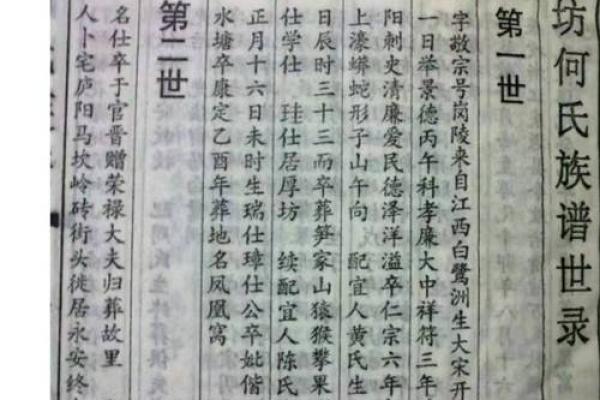 坊何氏族谱世录
第一世
字敬宗号岗陵来自江西白鹭洲生大宋开
一日举景德丙午科孝廉大中祥符三年
阳刺史清廉爱民德泽洋溢卒仁宗六年
上濠蟒蛇形子山午向 配宜人黄氏生
日辰时三十三而卒葬笋家山猿猴攀果
仕学仕 珪仕居厚坊 续配宜人陈氏
正月十六日未时生瑞仕璋仕公卒妣偕
水塘卒康定乙酉年葬地名凤凰窝
第二世
名仕卒于官晋赠荣禄大夫归葬故里
人卜宅庐阳马坎岭砖街头徙居永安终